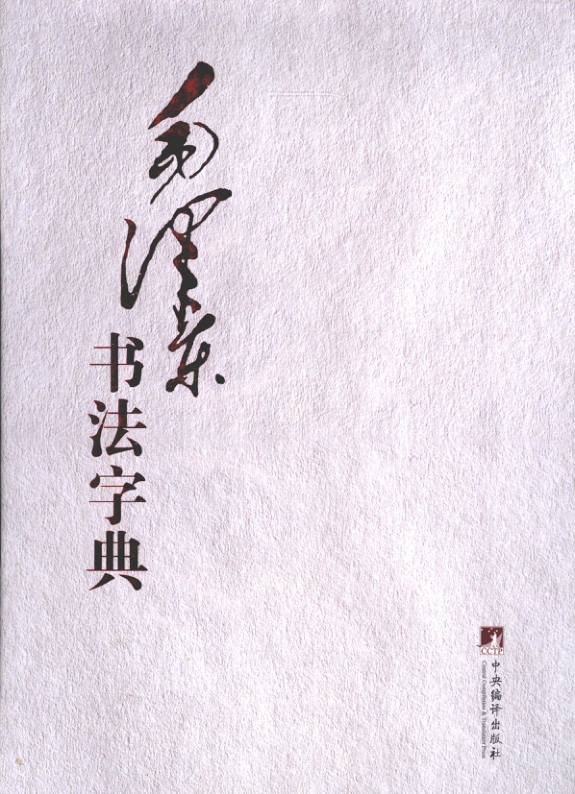 毛泽东
书法字典
CCTP
中央编译出版社
Central Compilation & Translation Press